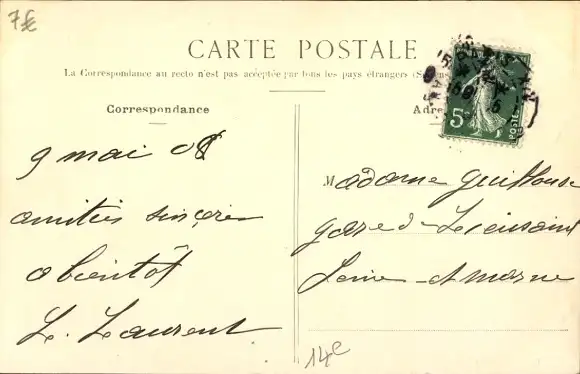 7€
CARTE POSTALE
La Correspondance au recto n'est pas acceptée par tous les pays étrangers
Correspondance
9 mai 08
amitiés sincères
a bientôt
L. Laurent
5c
POSTES
Madame Guillouse
gare de Lieusaint
Seine-et-Marne
14€